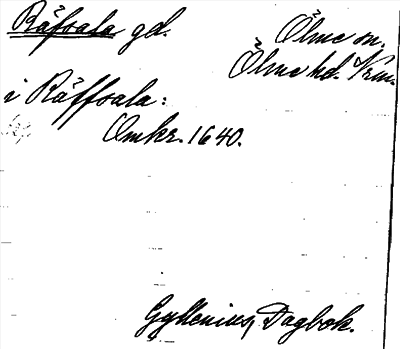 Räfsala gd.
Ölme sn.
Ölme hd. Vrm.
i Räffsala:
Omkr. 1640.
Gyllenius, Dagbok.